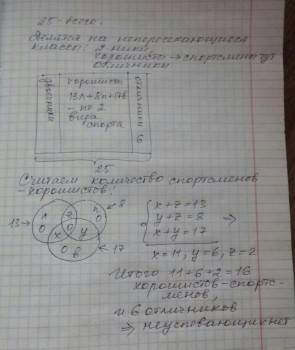 25 - всего.
Делятся на непересекающиеся
классы: 2-ники,
хорошисты → спортсмены тут
отличники
двоечники
хорошисты
13л+8п+17в
- по 2
вида
спорта
отличники 6
25
Считаем количество спортсменов
-хорошистов:
13
л
0
z
п
0
8
0
x
y
0
в
17
x+z=13
y+z=8
x+y=17
⇒
x=11, y=6, z=2
Итого 11+6+2=16
хорошистов-спортс-
менов,
и 6 отличников
⇒ неуспевающих нет